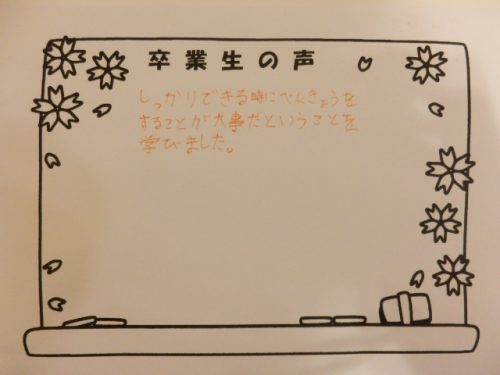 卒業生の声
しっかりできる時にべんきょうを
することが大事だということを
学びました。